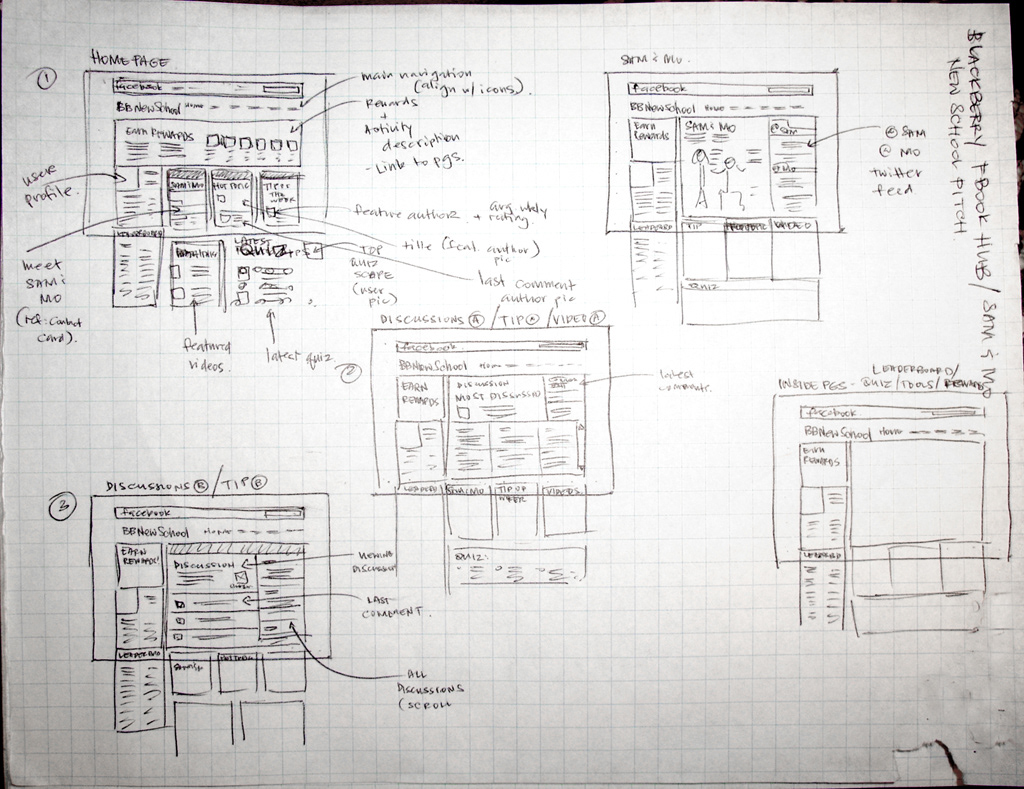 BLACKBERRY FBOOK HUB / SAM & MO
NEW SCHOOL PITCH
1
HOMEPAGE
facebook
BBNewSchool Home
EARN REWARDS
SAM & MO
HOT TOPIC
TIP OF
THE
WEEK
LATEST
QUIZ
main navigation
(align w/ icons).
Rewards
+
Activity
description
- Link to pgs.
user
profile.
meet
SAM &
MO
(ref: contact
card).
featured
videos.
latest quiz.
feature author + avg wkly
rating.
title (feat. author)
pic
TOP
QUIZ
SCORE
(user
pic)
last comment
author pic
SAM & MO.
facebook
BBNewSchool Home
EARN
REWARDS
SAM & MO
@ SAM
@ MO
LEADERBD
TIP
HOT TOPIC
VIDEO
QUIZ
@ SAM
@ MO
twitter
feed
2
DISCUSSIONS A / TIP A / VIDEO A
facebook
BBNewSchool Home
EARN
REWARDS
DISCUSSION
MOST DISCUSSED
LEADERBD
SAM & MO
TIP OF
WEEK
VIDEOS
QUIZ:
latest
comments.
LEADERBOARD/
INSIDE PGS - QUIZ/TOOLS/REWARDS
facebook
BBNewSchool Home
EARN
REWARDS
LEADERBD
3
DISCUSSIONS B / TIP B
facebook
BBNewSchool Home
EARN
REWARDS
DISCUSSION
LEADERBD
SAM & MO
HOT TOPIC
VIEWING
DISCUSSION
LAST
COMMENT.
ALL
DISCUSSIONS
(SCROLL